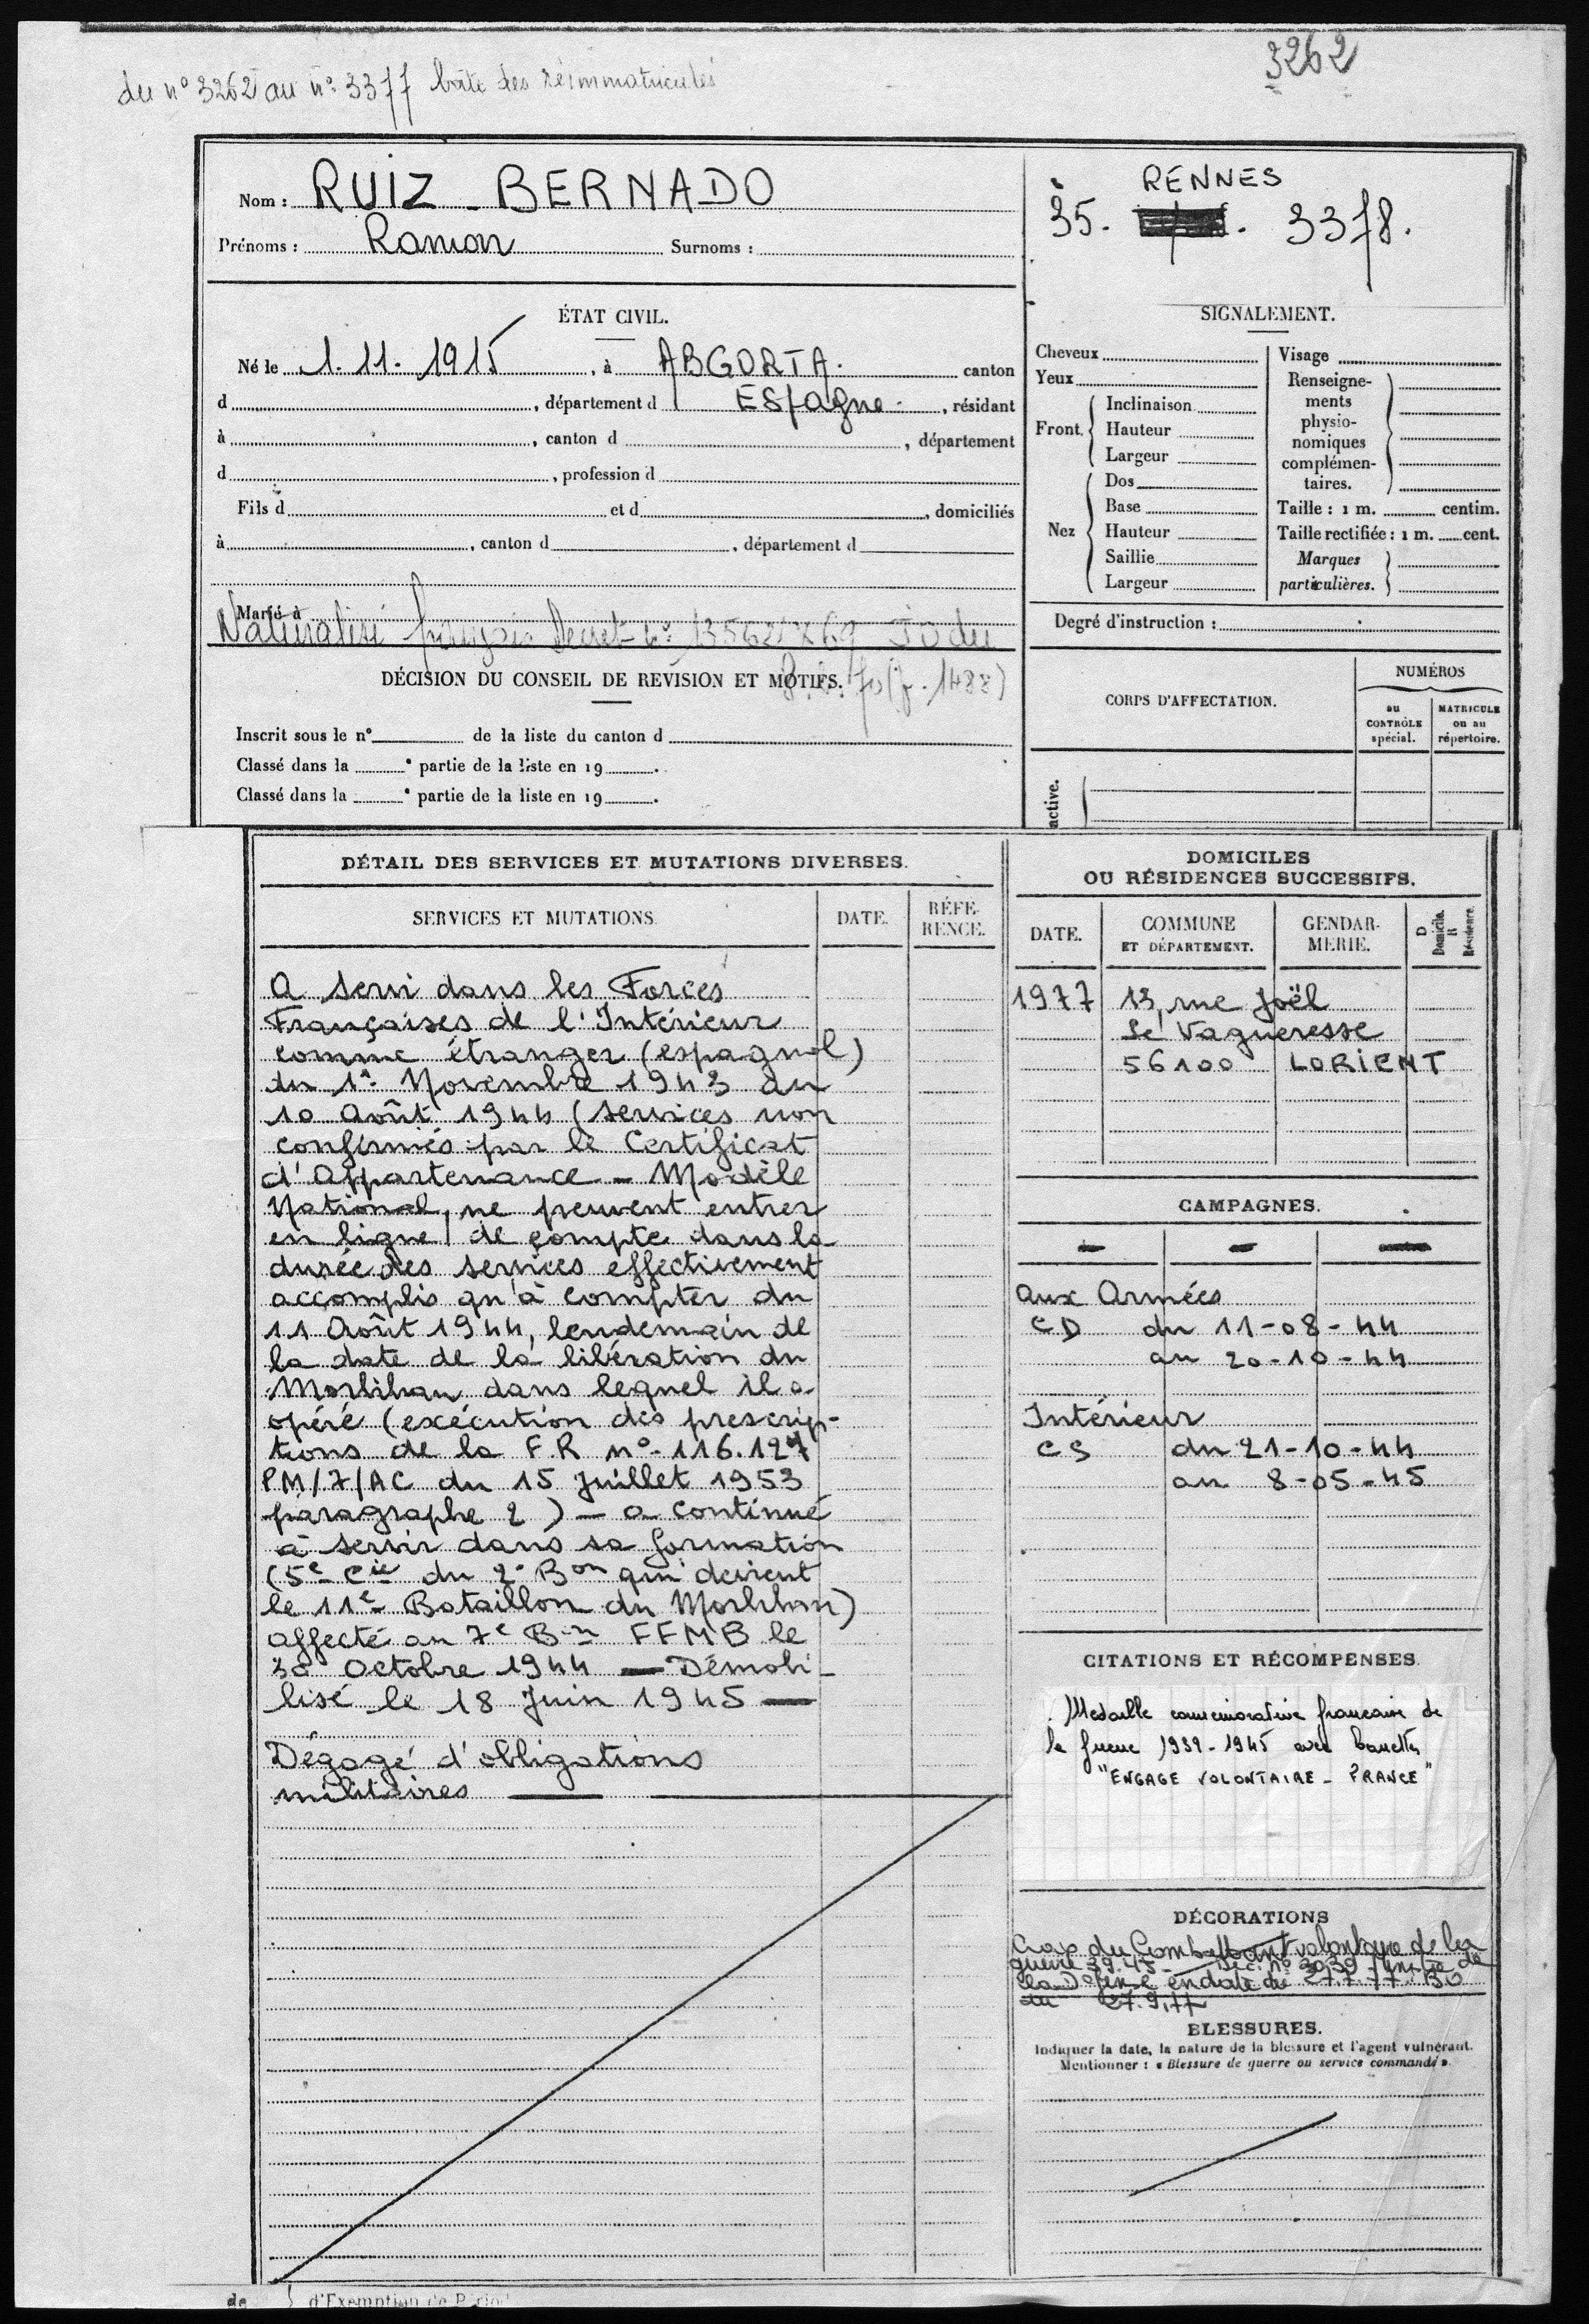 3262
du n° 3262 au n° 3377 boîte des réimmatriculés
Nom : RUIZ - BERNADO
Prénoms : Ramon Surnoms :
RENNES
35. 3378.
ÉTAT CIVIL.
Né le 1. 11. 1915, à ABGORTA. canton
d , département d Espagne. , résidant
à , canton d , département
d , profession d
Fils d et d , domiciliés
à , canton d , département d
Marié à
Naturalisé français Décret n° 13562 X 69 JO du
70 (p. 1488)
DÉCISION DU CONSEIL DE REVISION ET MOTIFS.
Inscrit sous le n° de la liste du canton d
Classé dans la e partie de la liste en 19 .
Classé dans la e partie de la liste en 19 .
SIGNALEMENT.
Cheveux
Yeux
Front.
Inclinaison
Hauteur
Largeur
Nez
Dos
Base
Hauteur
Saillie
Largeur
Visage
Renseigne-
ments
physio-
nomiques
complémen-
taires.
Taille : 1 m. centim.
Taille rectifiée : 1 m. cent.
Marques
particulières.
Degré d'instruction :
CORPS D'AFFECTATION.
NUMÉROS
au
CONTRÔLE
spécial.
MATRICULE
ou au
répertoire.
active.
DÉTAIL DES SERVICES ET MUTATIONS DIVERSES.
SERVICES ET MUTATIONS.
DATE.
RÉFÉ-
RENCE.
A servi dans les Forces
Françaises de l'Intérieur
comme étranger (espagnol)
du 1er Novembre 1943 au
10 Août 1944 (services non
confirmés par le Certificat
d'Appartenance - Modèle
National, ne peuvent entrer
en ligne de compte dans la
durée des services effectivement
accomplis qu'à compter du
11 Août 1944, lendemain de
la date de la libération du
Morbihan dans lequel il a
opéré (exécution des prescrip-
tions de la F.R n° 116.127
PM/7/AC du 15 Juillet 1953
paragraphe 2) - a continué
à servir dans sa formation
(5e Cie du 2e Bon qui devient
le 11e Bataillon du Morbihan)
affecté au 7e Bon FFMB le
30 Octobre 1944 — Démobi-
lisé le 18 Juin 1945 —
Dégagé d'obligations
militaires
DOMICILES
OU RÉSIDENCES SUCCESSIFS.
DATE.
COMMUNE
ET DÉPARTEMENT.
GENDAR-
MERIE.
D
Domicile.
R
Résidence.
1977 13, rue Joël
Le Vagueresse
56100 LORIENT
CAMPAGNES.
Aux Armées
CD du 11-08-44
au 20-10-44
Intérieur
CS du 21-10-44
au 8-05-45
CITATIONS ET RÉCOMPENSES.
Médaille commémorative française de
la guerre 1939-1945 avec barrette
"ENGAGE VOLONTAIRE - FRANCE"
DÉCORATIONS
Croix du Combattant volontaire de la
guerre 39.45 - Déc. n° 3039 de
la Défense en date du 27.7.77 BO
du 27.9.77
BLESSURES.
Indiquer la date, la nature de la blessure et l'agent vulnérant.
Mentionner : « Blessure de guerre ou service commandé ».
de d'Exemption de